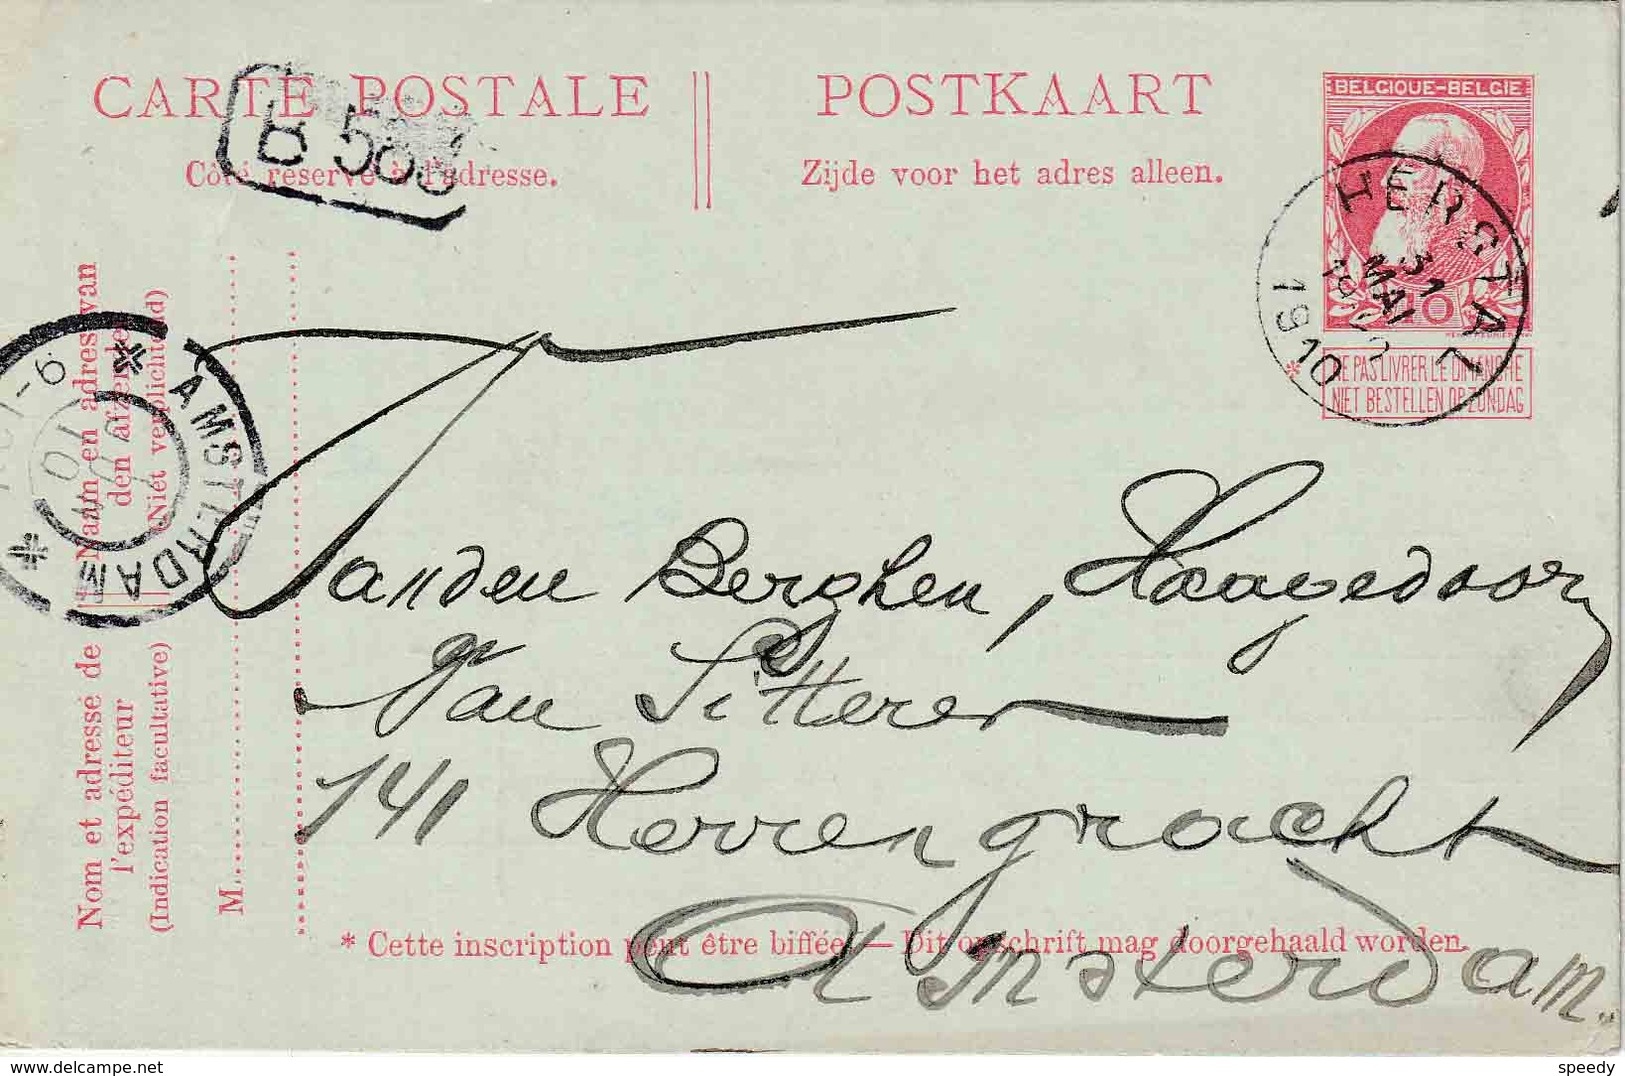 CARTE POSTALE
POSTKAART
Côté réservé à l'adresse.
Zijde voor het adres alleen.
B 583
BELGIQUE-BELGIE
10
HERSTAL
31
MAI
1910
* NE PAS LIVRER LE DIMANCHE
NIET BESTELLEN OP ZONDAG
* AMSTERDAM *
Naam en adres van
den afzender
(Niet verplichtend)
Nom et adresse de
l'expéditeur
(Indication facultative)
M
Vanden Berghen, Haagedoor
Van Sitteren
141 Herrengracht
Amsterdam.
* Cette inscription peut être biffée. — Dit opschrift mag doorgehaald worden.
delcampe.net
speedy